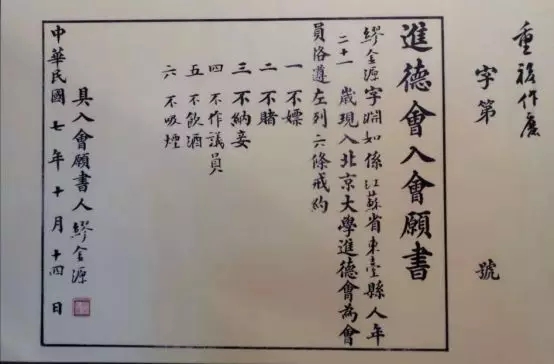 重複作廢
字第　號
進德會入會願書
繆金源字澗如係江蘇省東臺縣人年
二十一歲現入北京大學進德會為會
員恪遵左列六條戒約
一 不嫖
二 不賭
三 不納妾
四 不作議員
五 不飲酒
六 不吸煙
具入會願書人繆金源
中華民國七年十月十四日